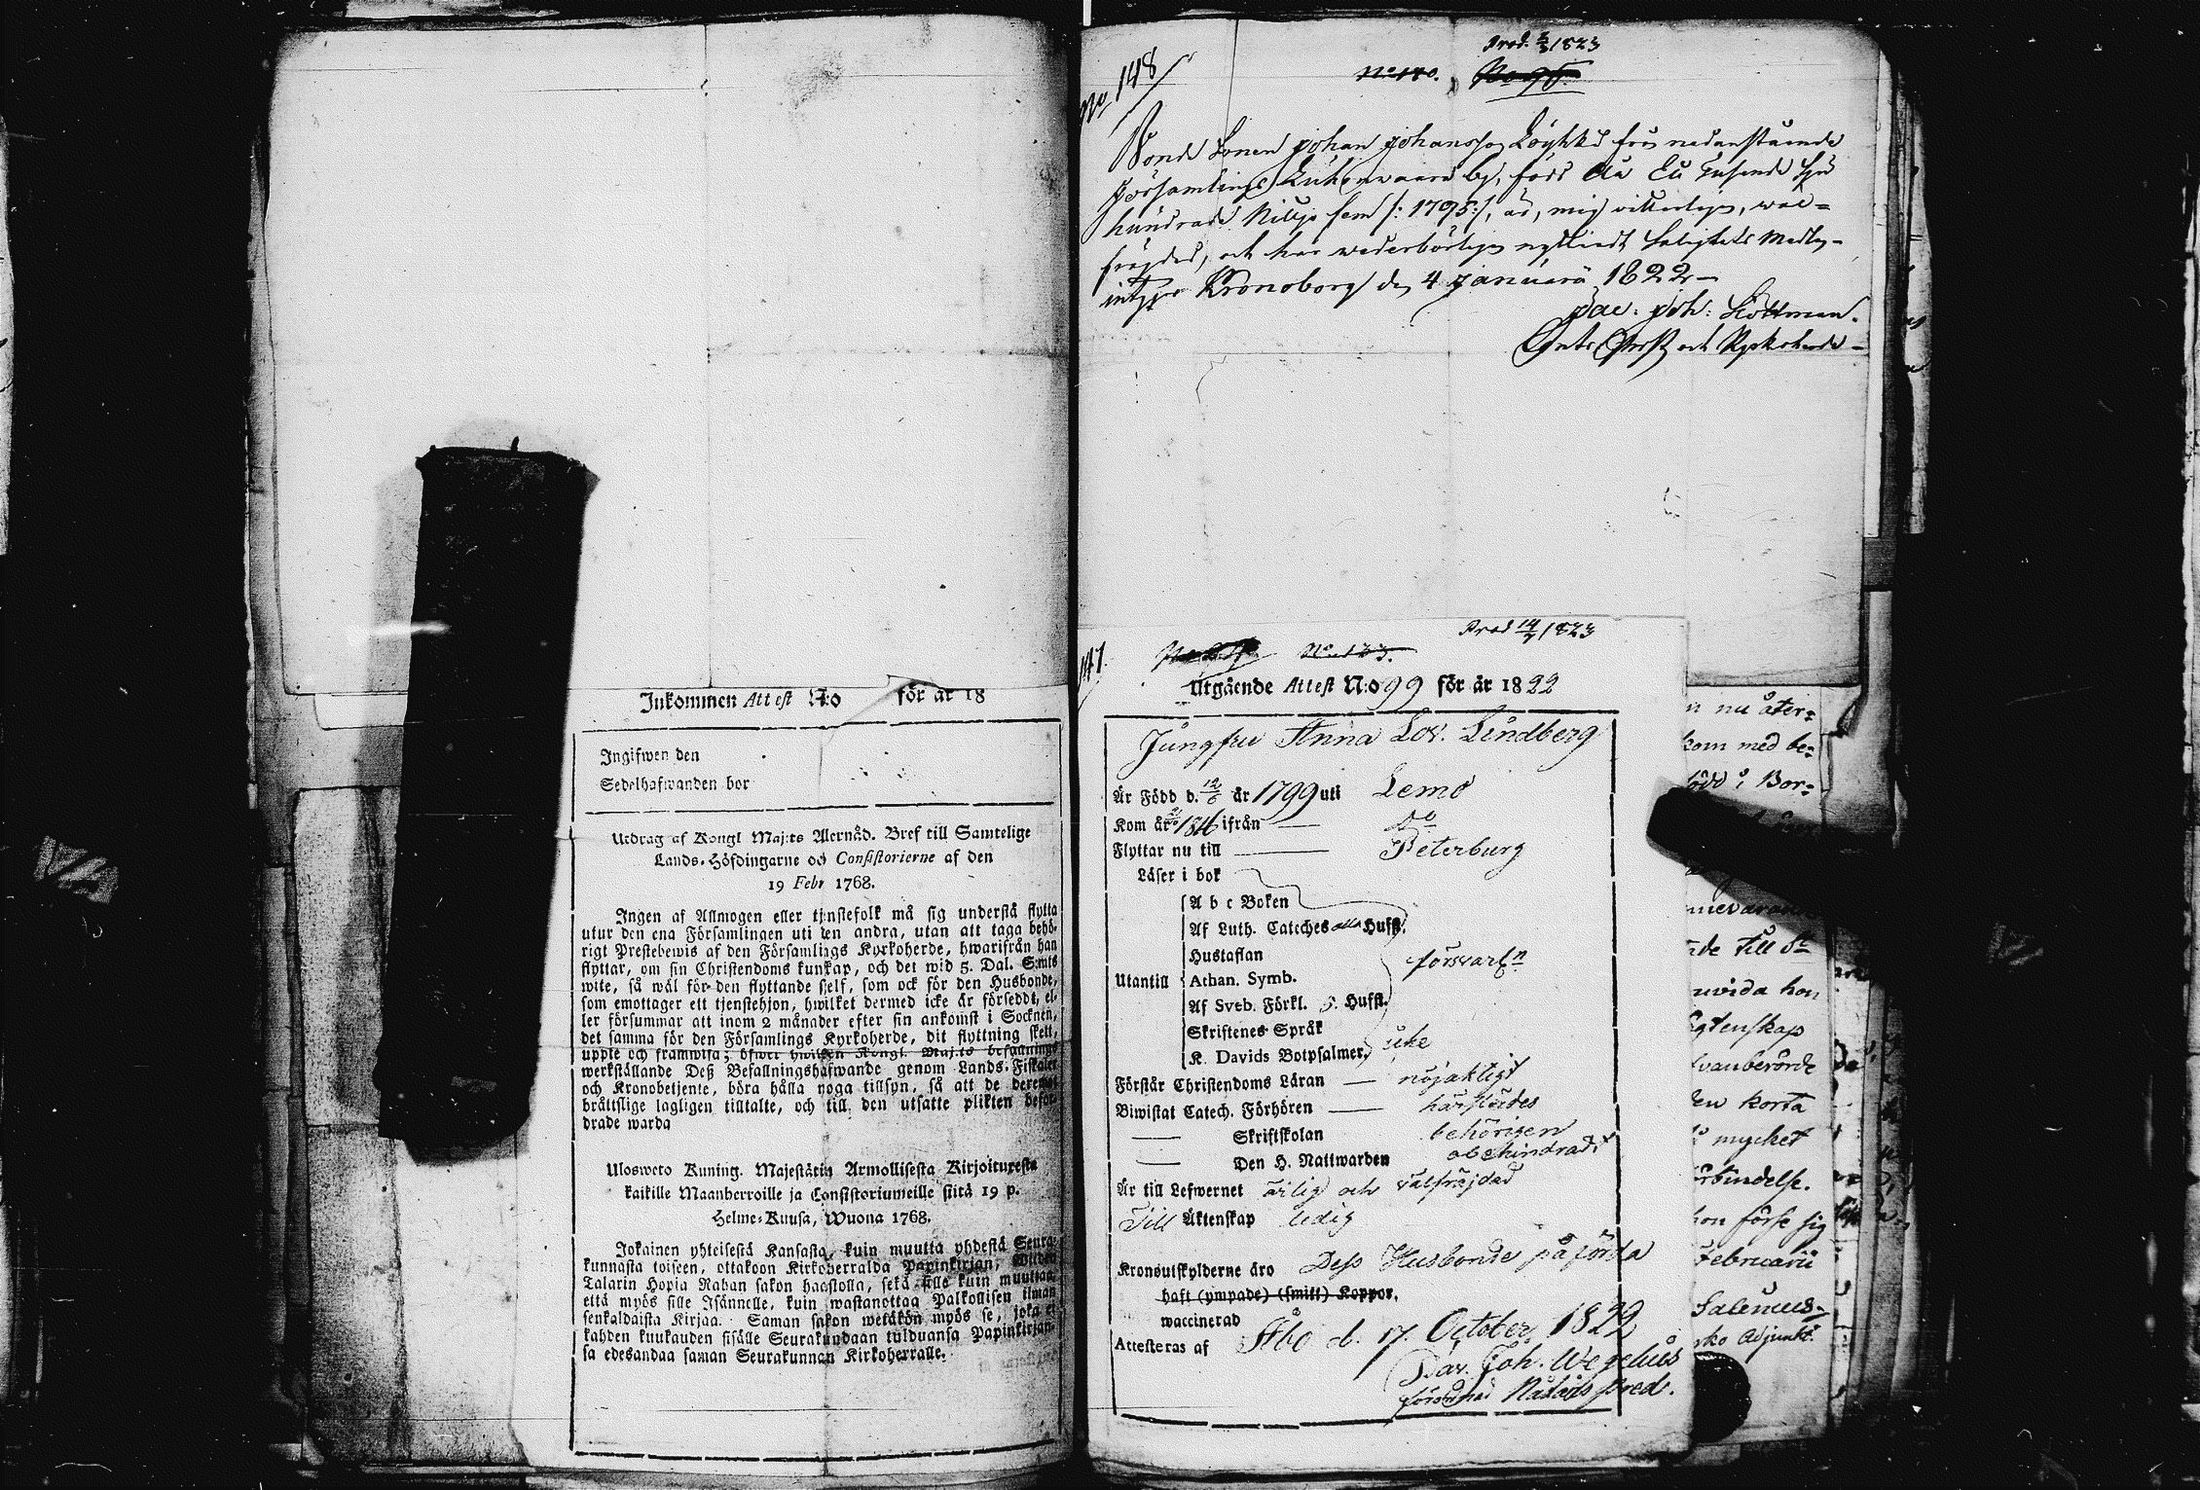 Inkommen Attest N:o för år 18
Ingifwen den
Sedelhafwanden bor
Utdrag af Kongl Maj:ts Allernåd. Bref till Samtelige
Lands-Höfdingarne och Consistorierne af den
19 Febr 1768.
Ingen af Allmogen eller tjenstefolk må sig understå flytta
utur den ena Församlingen uti den andra, utan att taga behö-
rigt Prestebewis af den Församlings Kyrkoherde, hwarifrån han
flyttar, om sin Christendoms kunskap, och det wid 5. Dal. S:mts
wite, så wäl för den flyttande sjelf, som ock för den Husbonde,
som emottager ett tjenstehjon, hwilket dermed icke är försedt, el-
ler försummar att inom 2 månader efter sin ankomst i Socknen,
det samma för den Församlings Kyrkoherde, dit flyttning skett,
uppte och framwisa; öfwer hwilken Kongl. Maj:ts befallnings
werkställande Deß Befallningshafwande genom Lands-Fiskaler
och Kronobetjente, böra hålla noga tillsyn, så att de deremot
brättslige lagligen tilltalte, och till den utsatte plikten befor-
drade warda
Ulosweto Kuning. Majestätin Armollisesta Kirjoituxesta
kaikille Maanherroille ja Consistoriumeille siitä 19 p.
Helme-Kuusa, Wuona 1768.
Jokainen yhteisestä Kansasta, kuin muutta yhdestä Seura-
kunnasta toiseen, ottakoon Kirkoherralda Papinkirjan, Wiiden
Talarin Hopia Rahan sakon haastolla, sekä sille kuin muuttaa
että myös sille Isännelle, kuin wastanottaa Palkollisen ilman
senkaldaista Kirjaa. Saman sakon wetäkön myös se, joka ei
kahden kuukauden sisälle Seurakundaan tulduansa Papinkirjan-
sa edesandaa saman Seurakunnan Kirkoherralle.
No 148
Prod. 3/3 1823
No 140.
Bonde Sonen Johan Johansson från nedanstående
Församlings by, född År Ett Tusende Sju
hundrade Nittjo fem /: 1795:/, är, mig vitterligen, wäl-
frejdad, och har wederbörligen nyttiadt Salighets Medlen
Kronoborg den 4 Januarii 1822
Pae. Joh:
och Kyrkoherde
147.
Prod 14/7 1823
Utgående Attest N:o 99 för år 1822
Jungfru Anna Lov. Lindberg
Är Född d. 12/6 år 1799 uti Lemo
Kom år 1816 ifrån do
Flyttar nu till Peterburg
Läser i bok
A b c Boken
Af Luth. Cateches alla Hufst.
Hustaflan
försvarln
Utantill Athan. Symb.
Af Sveb. Förkl. 5. Hufst.
Skriftenes Språk
K. Davids Botpsalmer, icke
Förstår Christendoms Läran nöjaktigt
Biwistat Catech. Förhören härstädes
Skriftskolan behörigen
Den H. Nattwarden obehindradt
Är till Lefwernet ärlig och välfräjdad
Till Äktenskap ledig
Kronoutskylderne äro Dess Husbonde påförda
haft (ympade) (smitt) Koppor.
waccinerad
Attesteras af Åbo d. 17. October 1822
Joh. Wegelius
förordnad pred.
nu åter=
kom med be=
född i Bor=
till St
hon
vanberörde
korta
mycket
hon förse sig
Februarii
Salenius
Adjunkt.